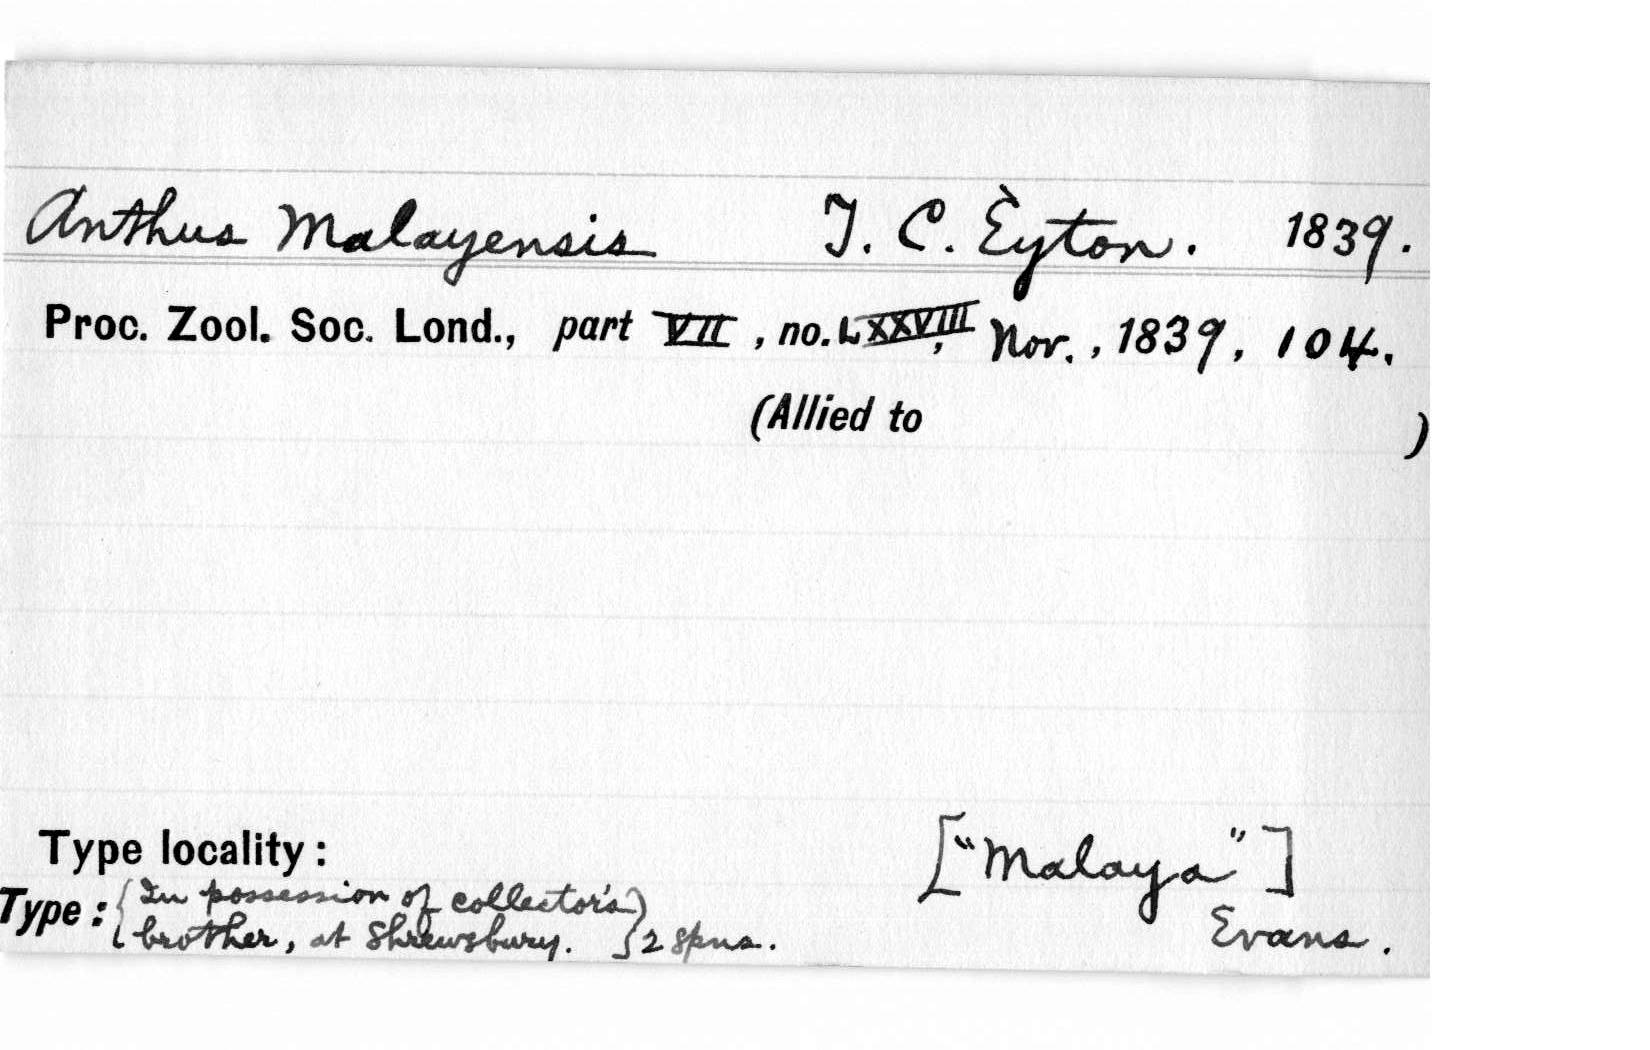 Anthus Malayensis T. C. Eyton. 1839.
Proc. Zool. Soc. Lond., part VII, no. LXXVIII, Nov., 1839, 104.
(Allied to )
Type locality: ["Malaya"]
Type: {In possession of collector's
brother, at Shrewsbury.} 2 spns. Evans.